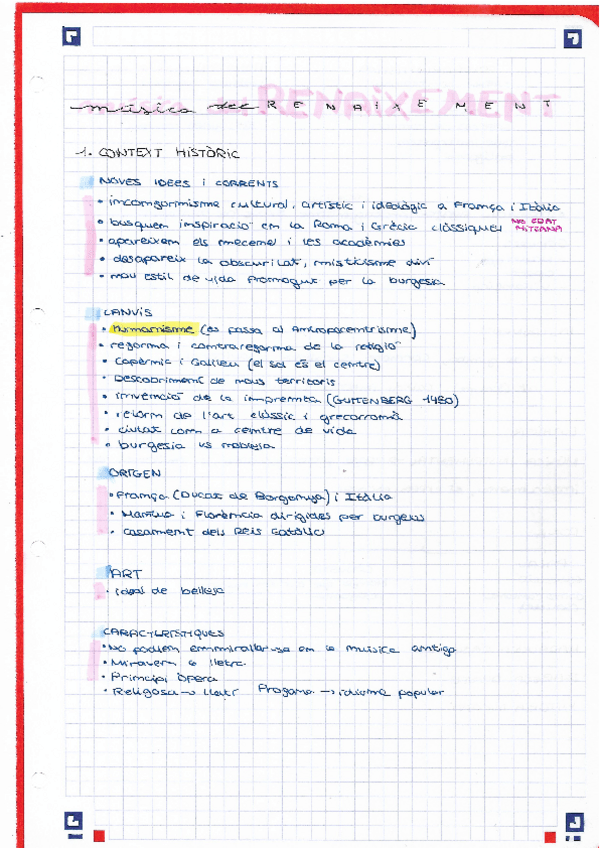 música del RENAIXEMENT
1. CONTEXT HISTÒRIC
NOVES IDEES i CORRENTS
• inconformisme cultural, artístic i ideològic a França i Itàlia
• busquen inspiració en la Roma i Grècia clàssiques NO EDAT MITJANA
• apareixen els mecenes i les acadèmies
• desapareix la obscuritat, misticisme diví
• nou estil de vida promogut per la burgesia
CANVIS
• Humanisme (es passa al Antropocentrisme)
• reforma i contrareforma de la religió
• Copèrnic i Galileu (el sol és el centre)
• Descobriment de nous territoris
• invenció de la impremta (GUTENBERG 1480)
• retorn de l'art clàssic i grecorromà
• ciutat com a centre de vida
• burgesia vs noblesa
ORIGEN
• França (Ducat de Borgonya) i Itàlia
• Màntua i Florència dirigides per burgesos
• casament dels Reis Catòlics
ART
• ideal de bellesa
CARACTERÍSTIQUES
• No podien emmirallar-se en la música antiga
• Miraven a lletra.
• Principi òpera
• Religiosa → llatí Profana → idioma popular